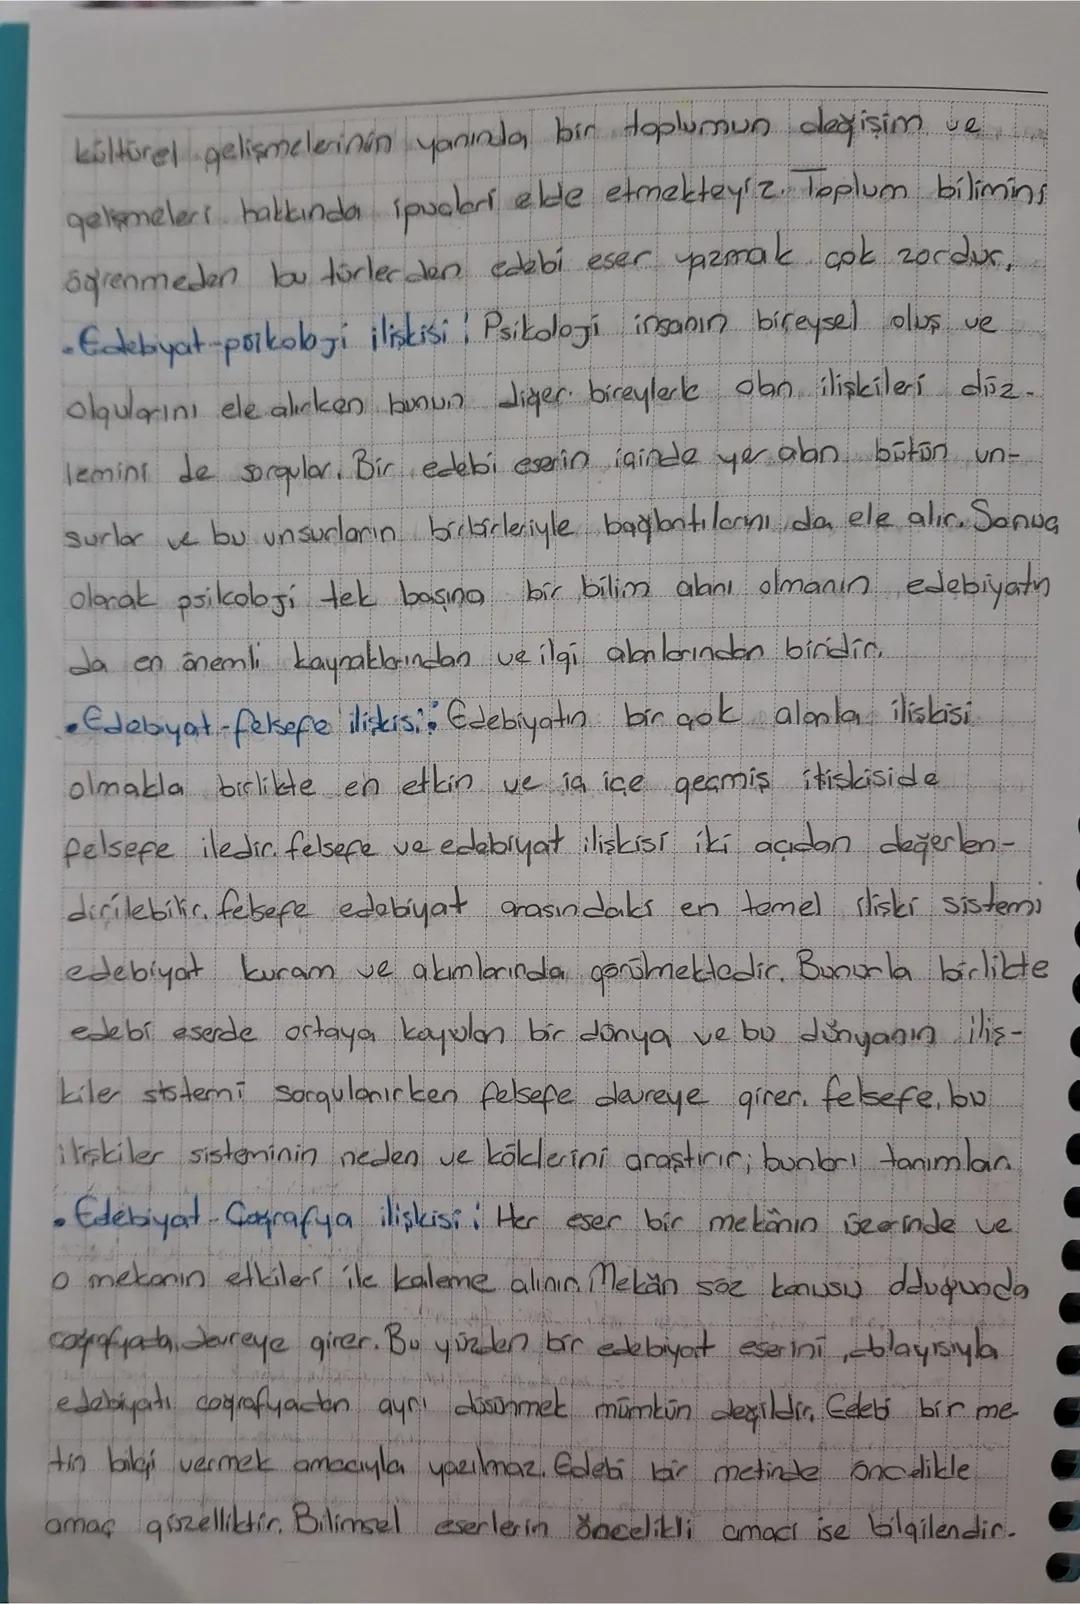 kültürel gelişmelerinin yanında bir toplumun değişim ve
gelişmeleri hakkında ipuçları elde etmekteyiz. Toplum bilimini
öğrenmeden bu türlerden edebi eser yazmak çok zordur.
• Edebiyat-psikoloji ilişkisi: Psikoloji insanın bireysel oluş ve
olgularını ele alırken bunun diğer bireylerle olan ilişkileri düz-
lemini de sorgular. Bir edebi eserin içinde yer alan bütün un-
surlar ve bu unsurların birbirleriyle bağlantılarını da ele alır. Sonuç
olarak psikoloji tek başına bir bilim alanı olmanın edebiyatın
da en önemli kaynaklarından ve ilgi alanlarından biridir.
• Edebiyat-felsefe ilişkisi: Edebiyatın bir çok alanla ilişkisi
olmakla birlikte en etkin ve iç içe geçmiş itişkiside
felsefe iledir. felsefe ve edebiyat ilişkisi iki açıdan değerlen-
dirilebilir. felsefe edebiyat arasındaki en temel ilişki sistemi
edebiyat kuram ve akımlarında görülmektedir. Bununla birlikte
edebi eserde ortaya koyulan bir dünya ve bu dünyanın iliş-
kiler sistemi sorgulanırken felsefe devreye girer. felsefe, bu
ilişkiler sisteminin neden ve köklerini araştırır; bunları tanımlar.
• Edebiyat-Coğrafya ilişkisi: Her eser bir mekânın üzerinde ve
o mekanın etkileri ile kaleme alınır. Mekân söz konusu olduğunda
coğrafyada devreye girer. Bu yüzden bir edebiyat eserini, dolayısıyla
edebiyatı coğrafyadan ayrı düşünmek mümkün değildir. Edebi bir me-
tin bilgi vermek amacıyla yazılmaz. Edebi bir metinde öncelikle
amaç güzelliktir. Bilimsel eserlerin öncelikli amacı ise bilgilendir-